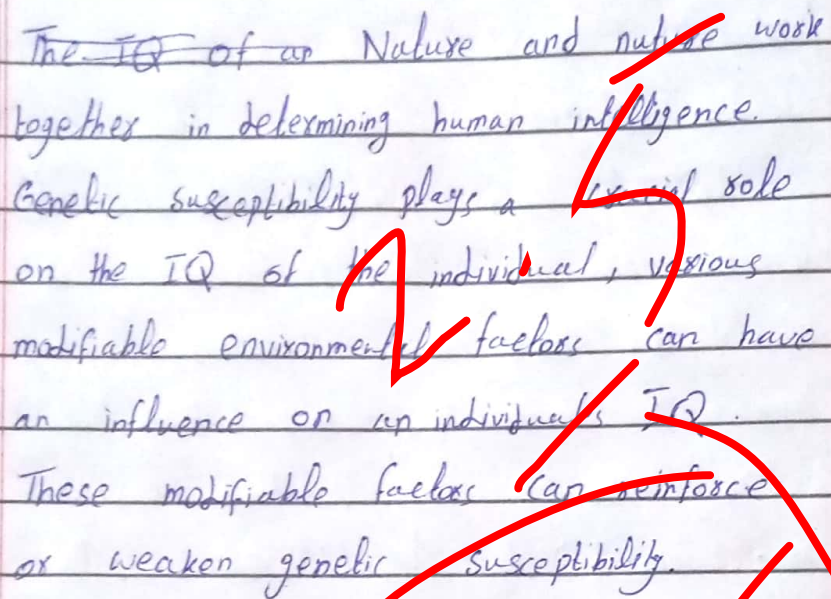 The IQ of an Nature and nuture work
together in determining human intelligence.
Genetic susceptibility plays a crucial role
on the IQ of the individual, various
modifiable environmental factors can have
an influence on an individual's IQ.
These modifiable factors can reinforce
or weaken genetic susceptibility.